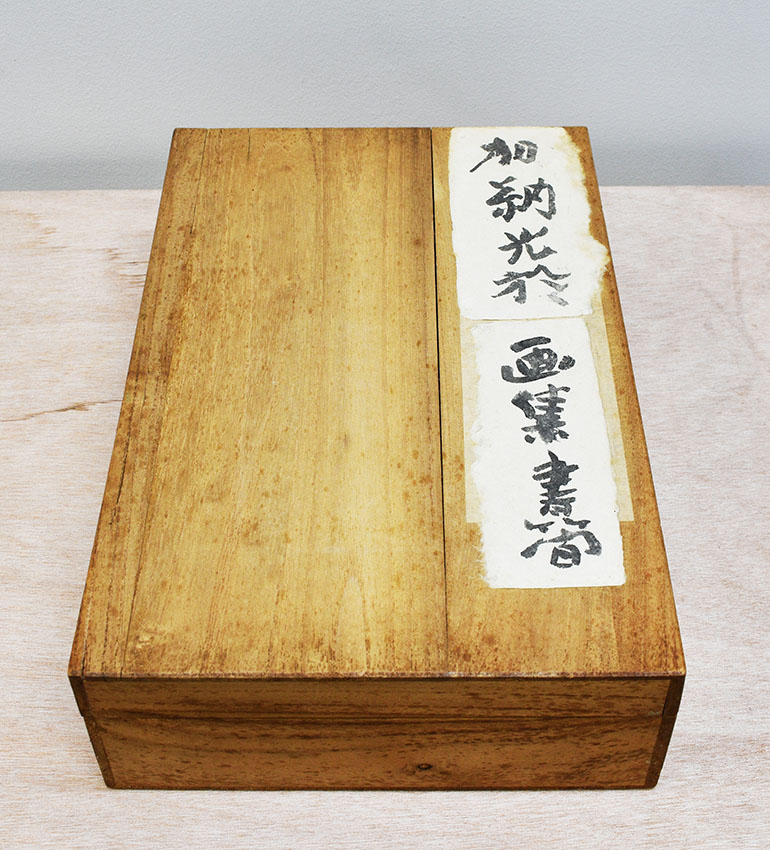 加納光於
画集書簡